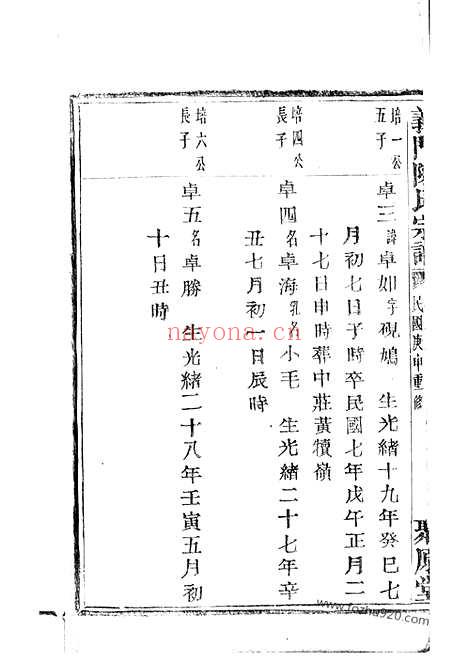 義門陳氏宗譜
民國庚申重修
聚原堂
培一公
五子
卓三諱卓如字硯鳩 生光緒十九年癸巳七
月初七日子時卒民國七年戊午正月二
十七日申時葬中莊黃犢嶺
培四公
長子
卓四名卓海乳名小毛 生光緒二十七年辛
丑七月初一日辰時
培六公
長子
卓五名卓勝 生光緒二十八年壬寅五月初
十日丑時
nayona.cn
www.fozhu920.com